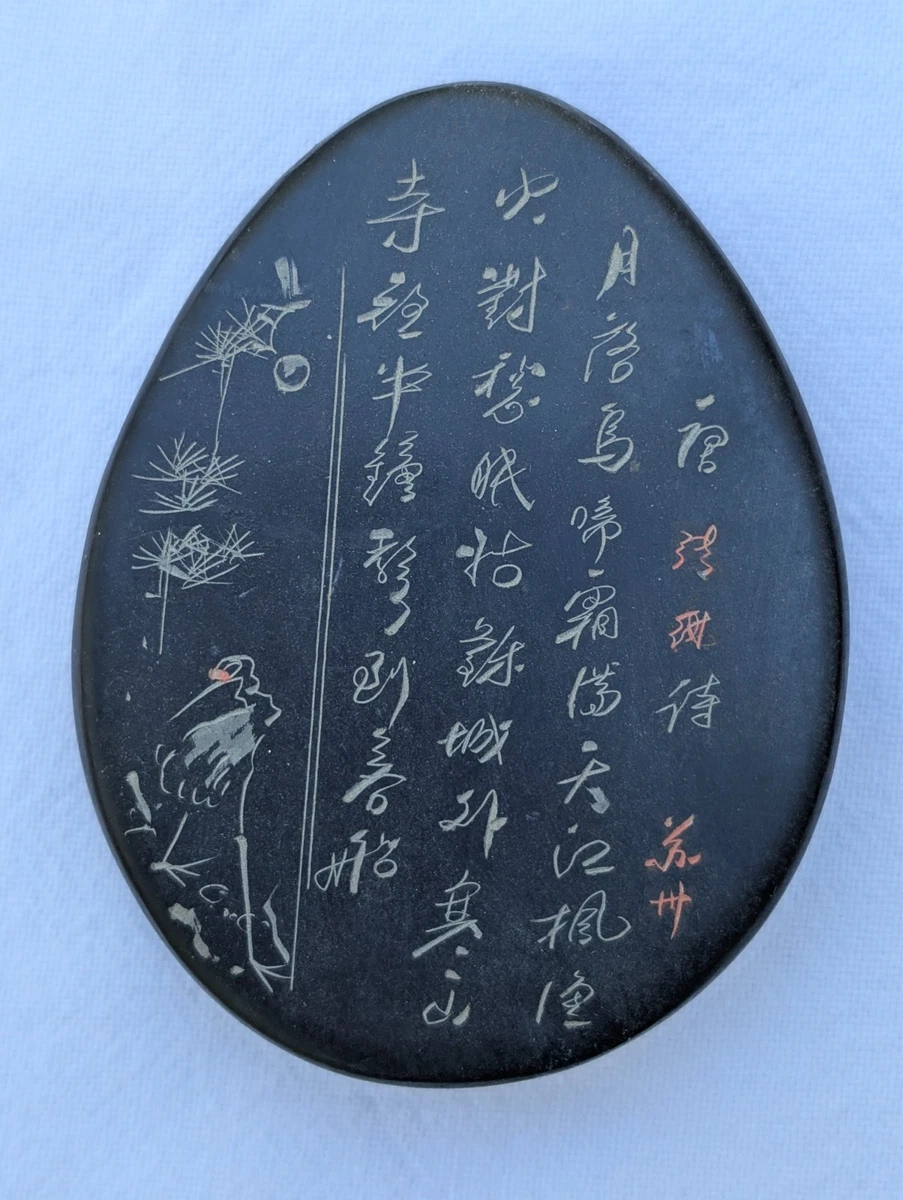 唐 張继詩 苏州
月落烏啼霜滿天江楓漁
火對愁眠姑蘇城外寒山
寺夜半鐘聲到客船